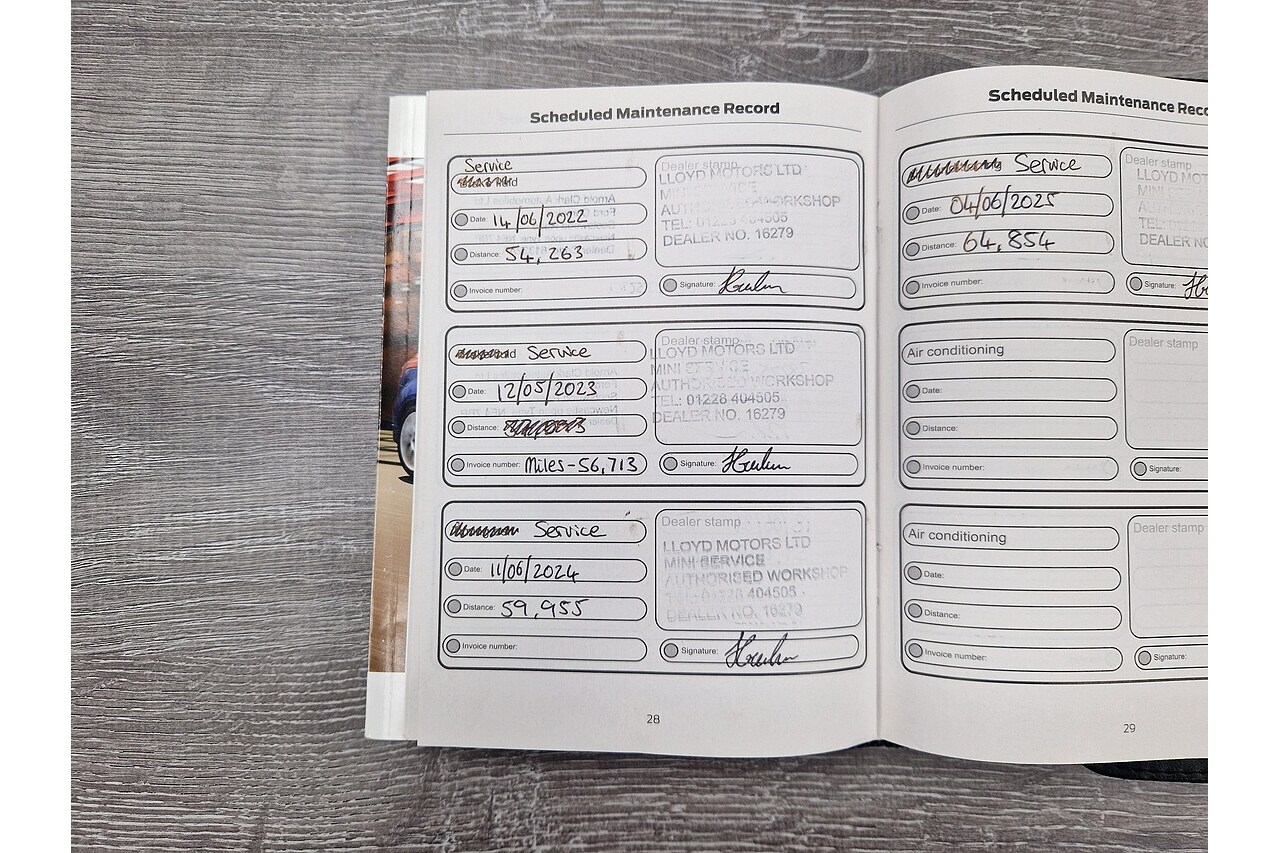 Scheduled Maintenance Record
Service
Date: 14/06/2022
Distance: 54,263
Invoice number:
Dealer stamp
LLOYD MOTORS LTD
AUTH WORKSHOP
TEL: 01228 404505
DEALER NO. 16279
Signature:
Service
Date: 12/05/2023
Distance:
Invoice number: Miles-56,713
Dealer stamp
LLOYD MOTORS LTD
MINI SERVICE
AUTHORISED WORKSHOP
TEL: 01228 404505
DEALER NO. 16279
Signature:
Service
Date: 11/06/2024
Distance: 59,955
Invoice number:
Dealer stamp
LLOYD MOTORS LTD
MINI SERVICE
AUTHORISED WORKSHOP
TEL: 01228 404505
DEALER NO. 16279
Signature:
28
Scheduled Maintenance Reco
Service
Date: 04/06/2025
Distance: 64,854
Invoice number:
Dealer stamp
LLOYD MOT
MINI
DEALER NO
Signature:
Air conditioning
Date:
Distance:
Invoice number:
Dealer stamp
Signature:
Air conditioning
Date:
Distance:
Invoice number:
Dealer stamp
Signature:
29